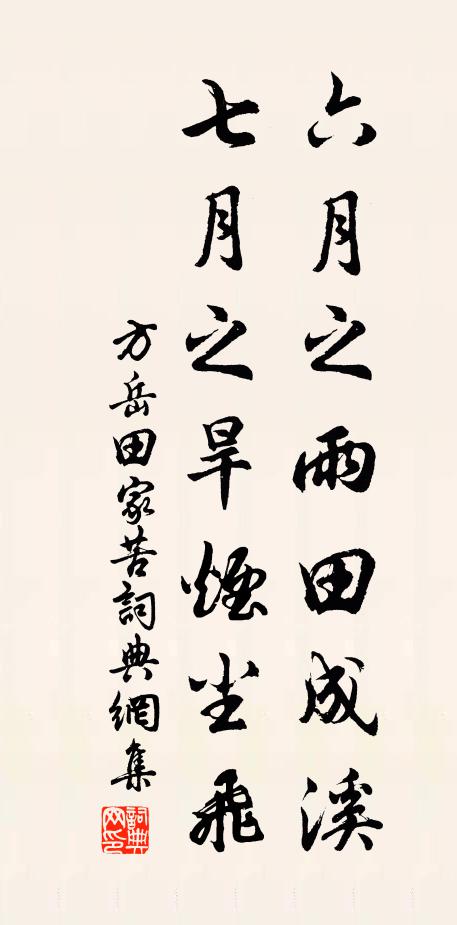 六月之雨田成溪
七月之旱煙坐飛
方岳田家苦詞典網集
詞典網印